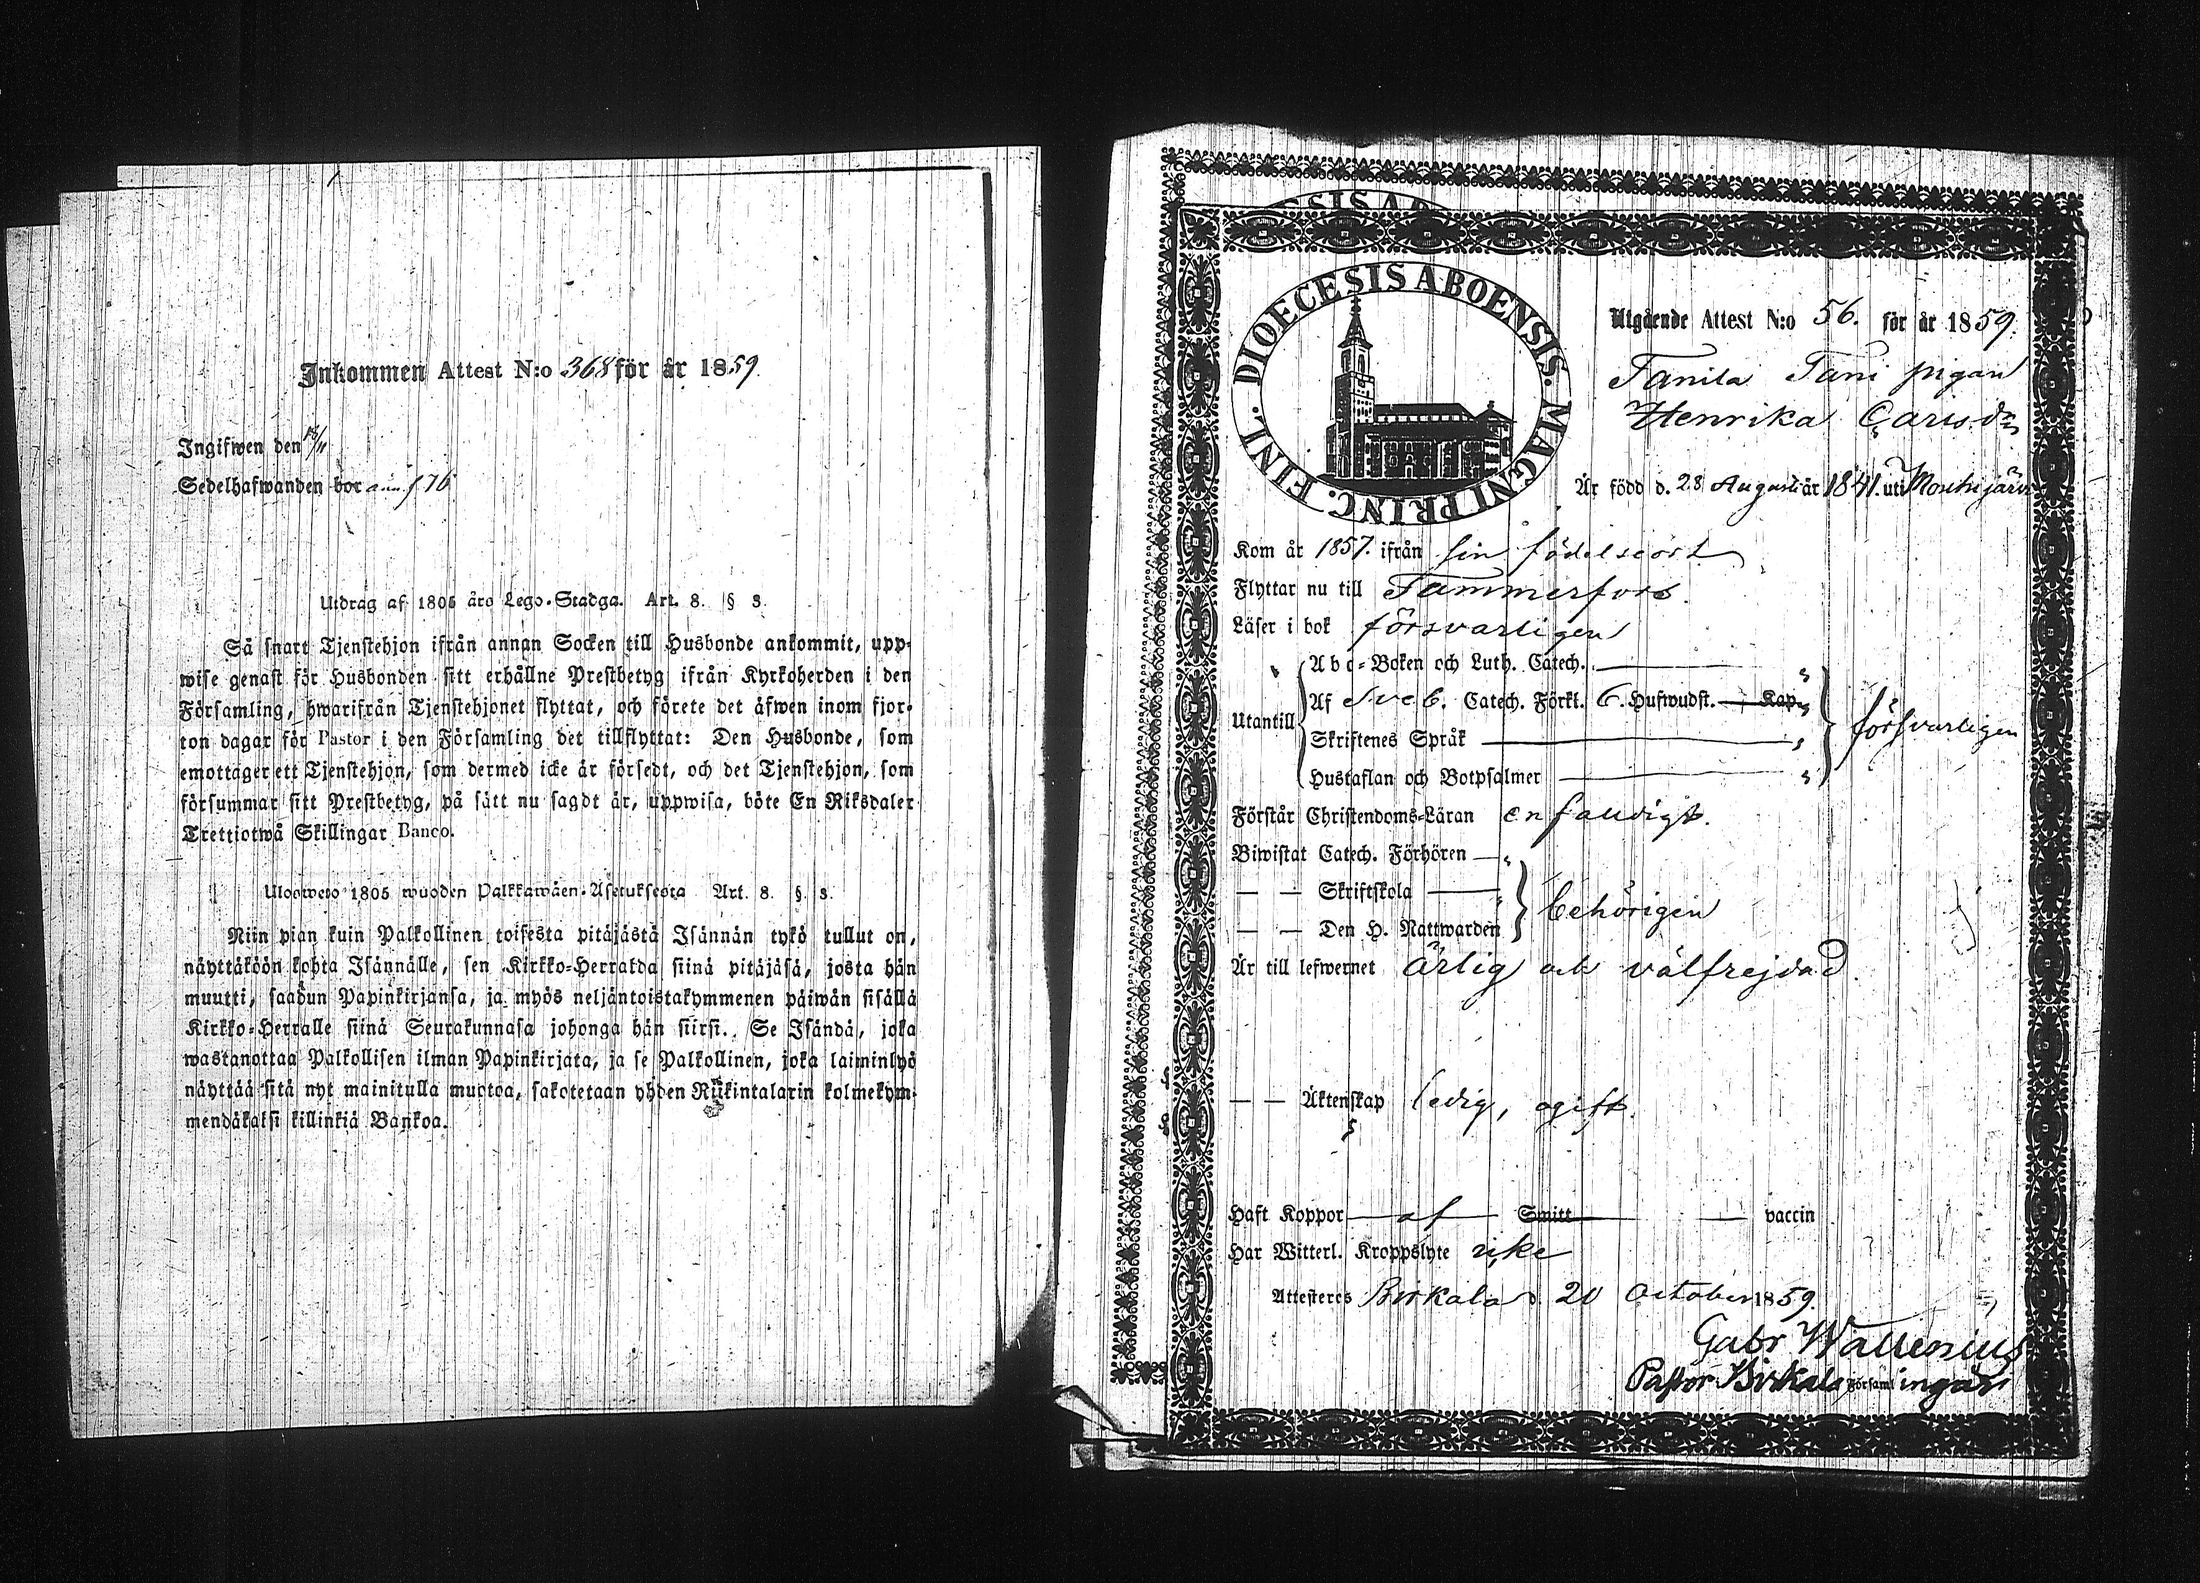 Inkommen Attest N:o 368 för år 1859.
Ingifwen den 18/11
Sedelhafwanden bor
Utdrag af 1805 års Lego-Stadga. Art. 8. § 3.
Så snart Tjenstehjon ifrån annan Socken till Husbonde ankommit, upp-
wise genast för Husbonden sitt erhållne Prestbetyg ifrån Kyrkoherden i den
Församling, hwarifrån Tjenstehjonet flyttat, och förete det äfwen inom fjor-
ton dagar för Pastor i den Församling det tillflyttat: Den Husbonde, som
emottager ett Tjenstehjon, som dermed icke är försedt, och det Tjenstehjon, som
försummar sitt Prestbetyg, på sätt nu sagdt är, uppwisa, böte En Riksdaler
Trettiotwå Skillingar Banco.
Ulosweto 1805 wuoden Palkkawäen-Asetuksesta Art. 8. §. 3.
Niin pian kuin Palkollinen toisesta pitäjästä Isännän tykö tullut on,
näyttäköön kohta Isännälle, sen Kirkko-Herralda siinä pitäjäsä, josta hän
muutti, saadun Papinkirjansa, ja myös neljäntoistakymmenen päiwän sisällä
Kirkko-Herralle siinä Seurakunnasa johonga hän siirsi. Se Isändä, joka
wastanottaa Palkollisen ilman Papinkirjata, ja se Palkollinen, joka laiminlyö
näyttää sitä nyt mainitulla muotoa, sakotetaan yhden Riikintalarin kolmekym-
mendäkaksi killinkiä Bankoa.
DIOECESIS ABOENSIS. MAGNI PRINC. FINL.
Utgående Attest N:o 56. för år 1859.
Tanila Tani pigan
Henrika Carlsdr
Är född d. 28 Augusti år 1841. uti Mouhijärvi
Kom år 1857. ifrån sin födelseort
Flyttar nu till Tammerfors.
Läser i bok försvarligen
Utantill
Abc-Boken och Luth. Catech.
Af Sveb. Catech. Förkl. 6. Hufwudst. Kap.
Skriftenes Språk
Hustaflan och Botpsalmer
försvarligen
Förstår Christendoms-Läran enfaldigt.
Biwistat Catech. Förhören
— — Skriftskola
— — Den H. Nattwarden
behörigen
Är till lefwernet ärlig och välfrejdad
— — Äktenskap ledig, ogift.
Haft Koppor af Smitt — vaccin
Har Witterl. Kroppslyte icke
Attesteras Birkala d. 20 October 1859.
Gabr Wallenius
Pastor Birkala Församlingars